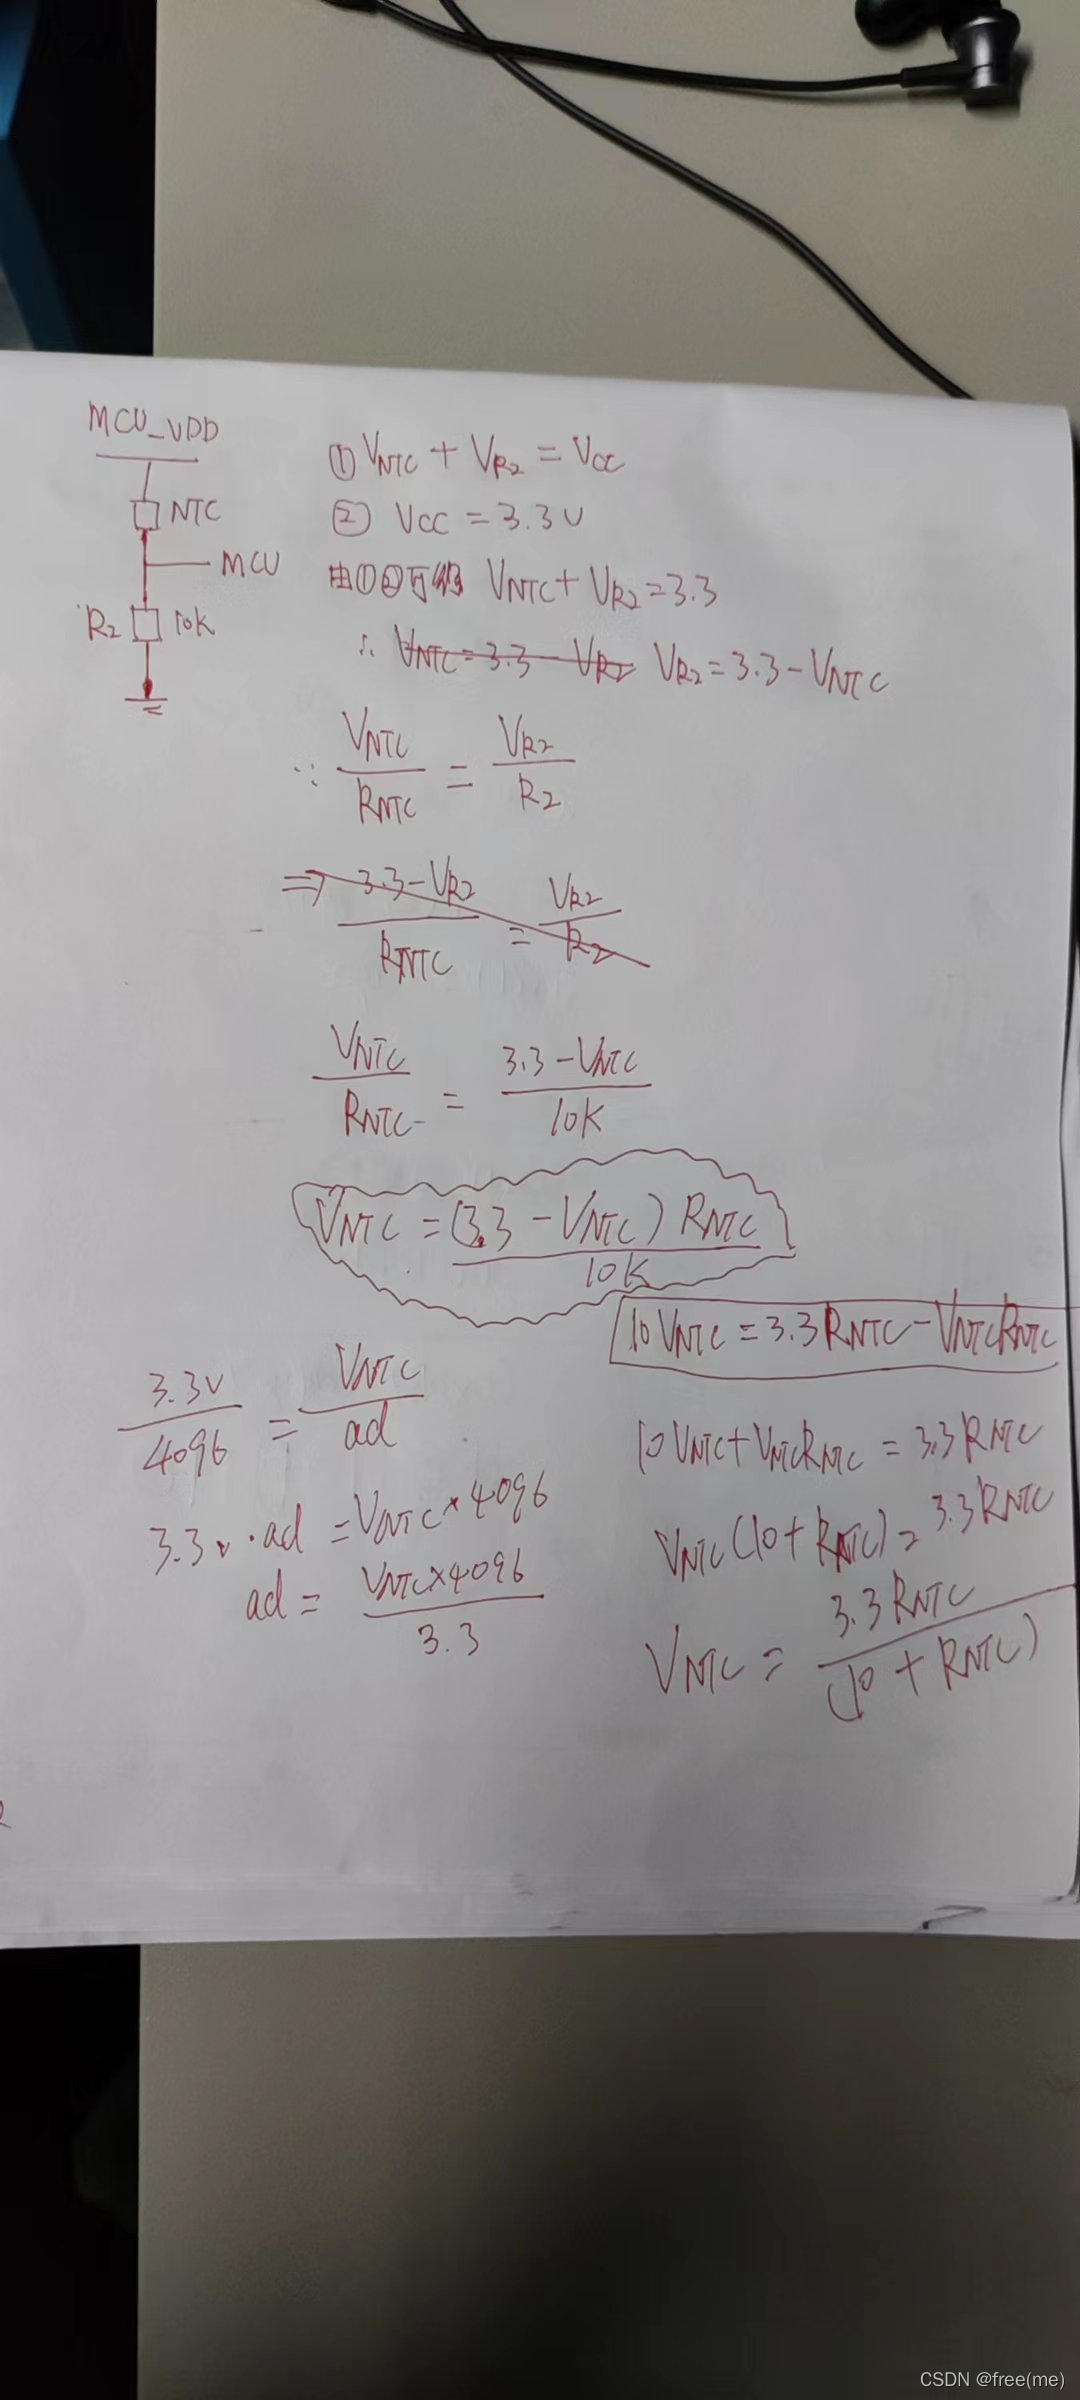 MCU_VDD
NTC
MCU
R2 10K
① VNTC + VR2 = VCC
② VCC = 3.3V
由①②可得 VNTC + VR2 = 3.3
∴ VNTC = 3.3 - VR2 VR2 = 3.3 - VNTC
∵ VNTC / RNTC = VR2 / R2
⇒ 3.3 - VR2 / RNTC = VR2 / R2
VNTC / RNTC = 3.3 - VNTC / 10K
VNTC = (3.3 - VNTC) RNTC / 10K
10VNTC = 3.3RNTC - VNTCRNTC
10VNTC + VNTCRNTC = 3.3RNTC
VNTC(10 + RNTC) = 3.3RNTC
VNTC = 3.3RNTC / (10 + RNTC)
3.3V / 4096 = VNTC / ad
3.3v · ad = VNTC × 4096
ad = VNTC×4096 / 3.3
CSDN @free(me)